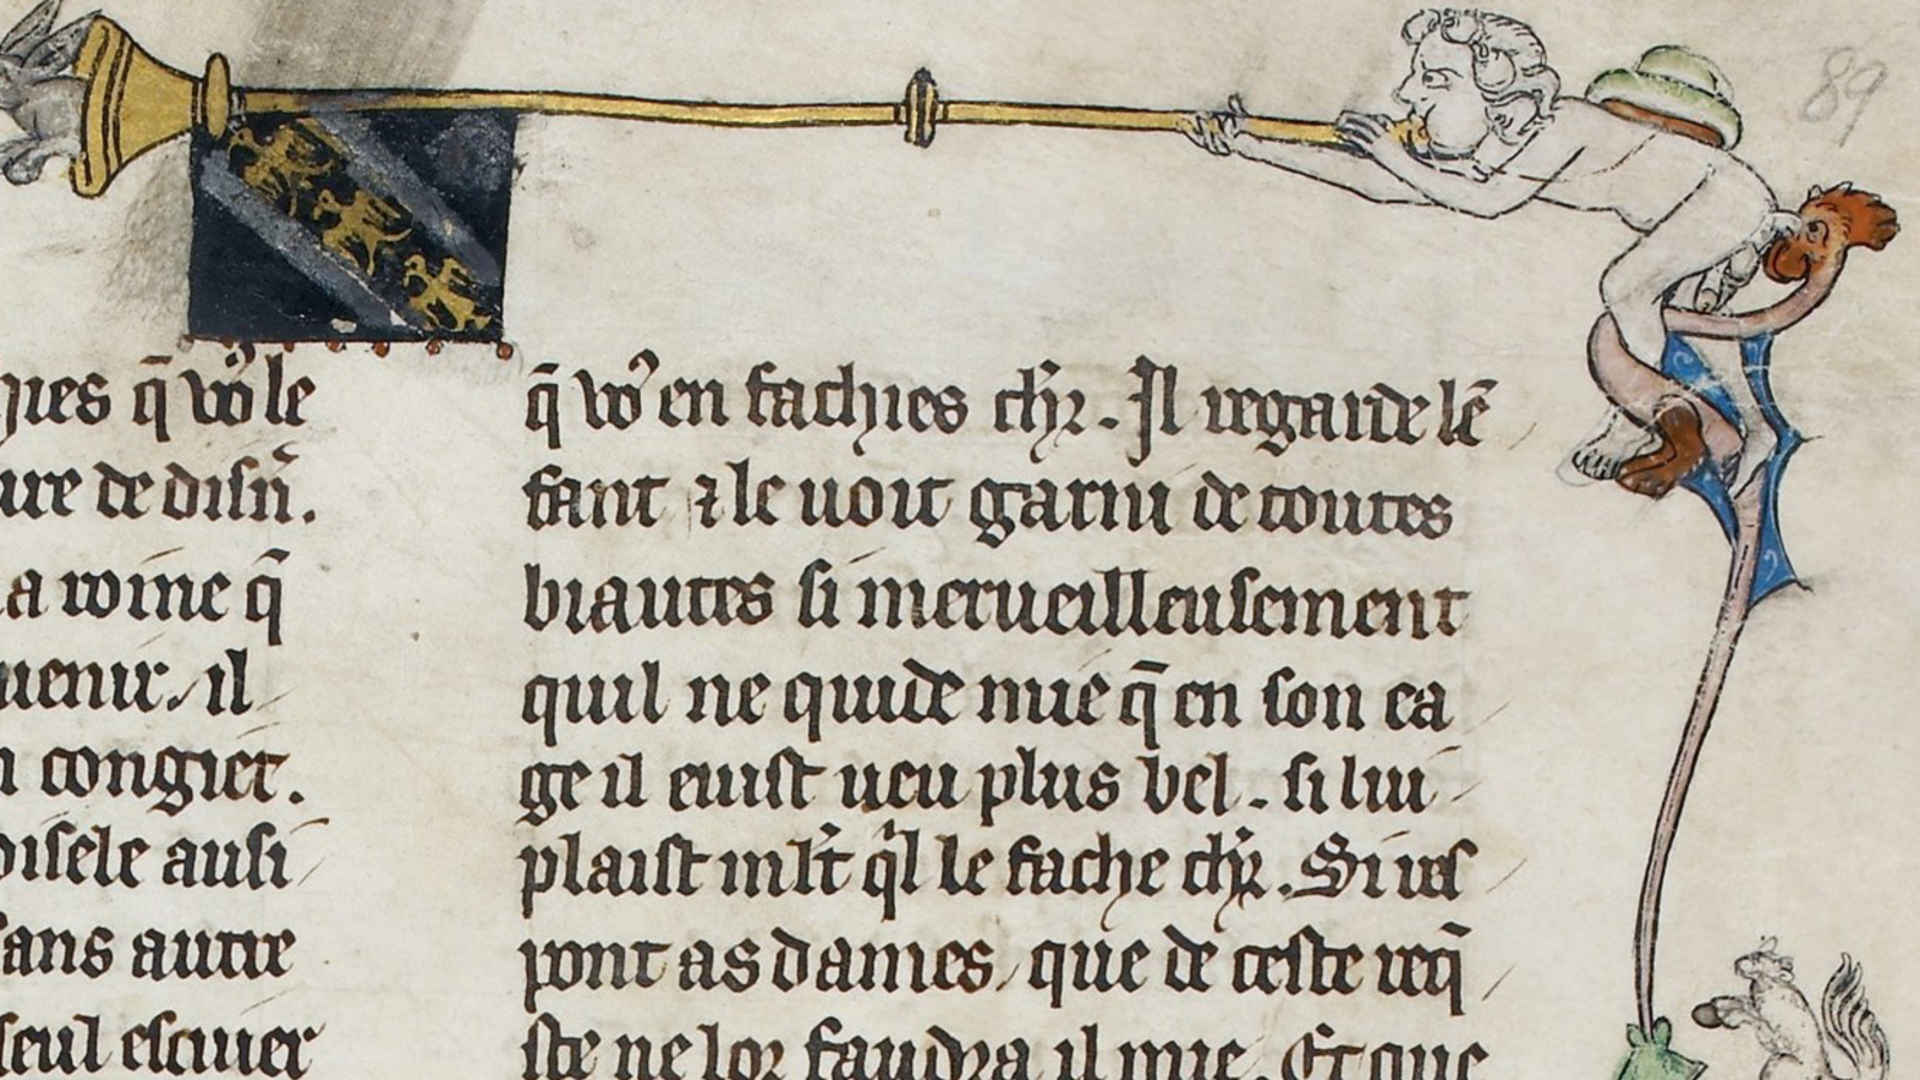 89
ɉies q̄ vo᷒ le
ure de disn̄.
la roine q̄
uenir. il
congiet.
oisele ausi
sans autre
seul escuier
q̄ vo᷒ en fachies chr̄. Il regarde lē
fant ⁊ le uoit garni de toutes
biautes si merueilleusement
quil ne quide mie q̄ en son ea
ge il euist ueu plus bel. si lui
plaist ml̄t ql le fache chr̄. Si res
pont as dames, que de ceste req̄
ste ne lor faudra il mie. Et que